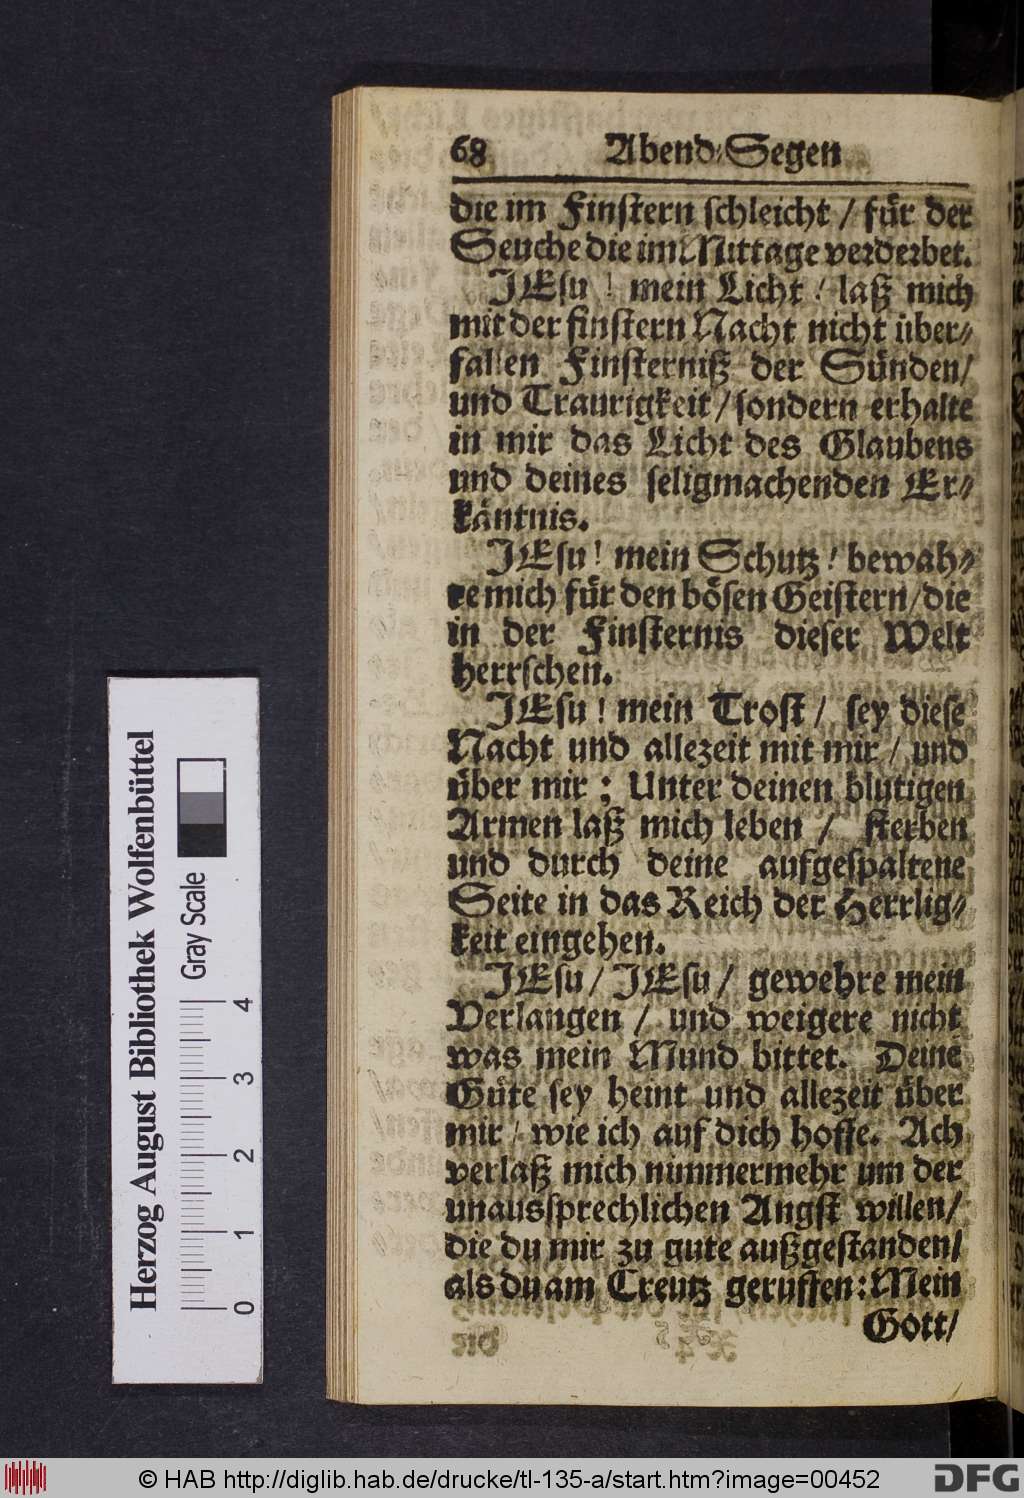 68 Abend-Segen
die im Finstern schleicht / für der
Seuche die im Mittage verderbet.
JEsu! mein Licht! laß mich
mit der finstern Nacht nicht über-
fallen Finsterniß der Sünden/
und Traurigkeit / sondern erhalte
in mir das Licht des Glaubens
und deines seligmachenden Er-
käntnis.
JEsu! mein Schutz! bewah-
re mich für den bösen Geistern / die
in der Finsternis dieser Welt
herrschen.
JEsu! mein Trost / sey diese
Nacht und allezeit mit mir / und
über mir; Unter deinen blutigen
Armen laß mich leben / sterben
und durch deine aufgespaltene
Seite in das Reich der Herrlig-
keit eingehen.
JEsu / JEsu / gewehre mein
Verlangen / und weigere nicht
was mein Mund bittet. Deine
Güte sey heint und allezeit über
mir / wie ich auf dich hoffe. Ach
verlaß mich nimmermehr um der
unaussprechlichen Angst willen/
die du mir zu gute außgestanden/
als du am Creutz geruffen: Mein
Gott/
Herzog August Bibliothek Wolfenbüttel
Gray Scale
0 1 2 3 4
© HAB http://diglib.hab.de/drucke/tl-135-a/start.htm?image=00452
DFG